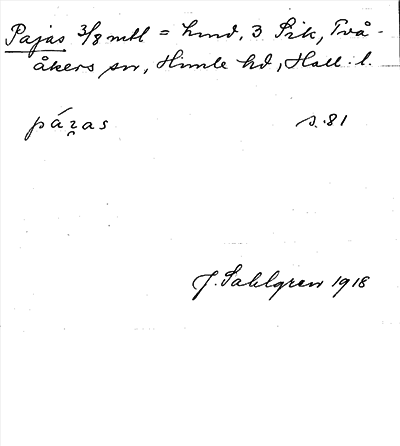 Pajas 3/8 mtl = hmd, 3 Sik, Två-
åkers sn, Himle hd, Hall. l.
páz̯as s. 81
J. Sahlgren 1918